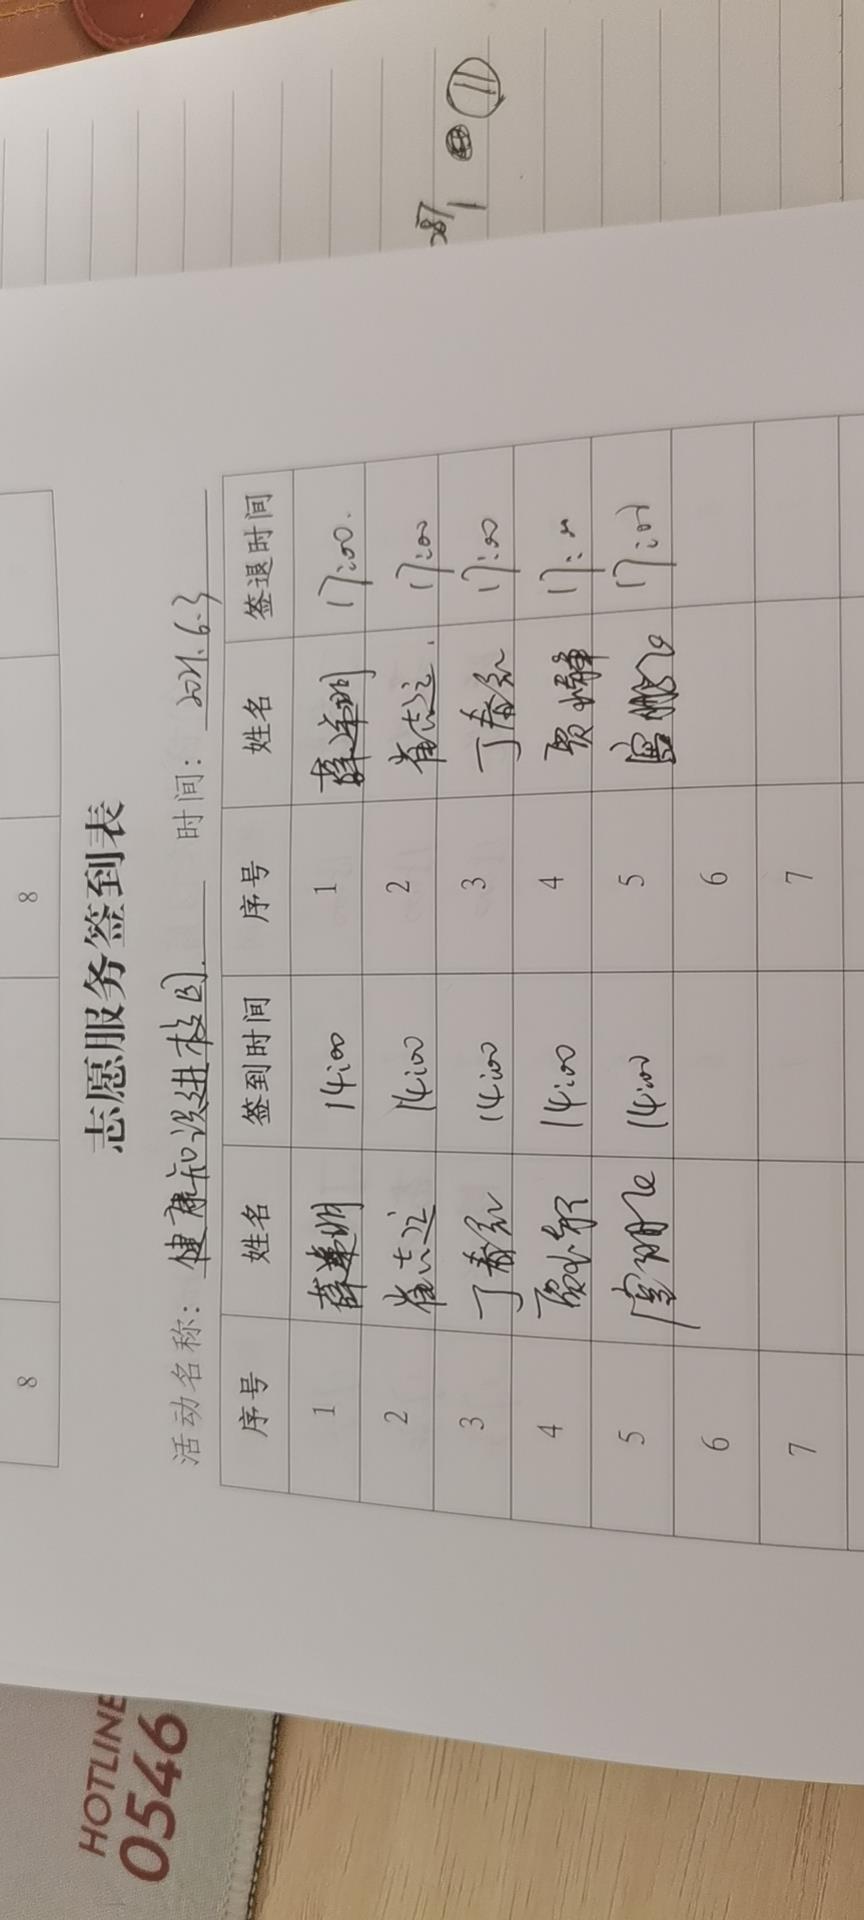 8 8
志愿服务签到表
活动名称: 健康知识进校园 时间: 2021.6.3
序号 姓名 签到时间 序号 姓名 签退时间
1 薛莲明 14:00 1 薛莲明 17:00.
2 崔志远 14:00 2 崔志远. 17:00
3 丁春红 14:00 3 丁春红 17:00
4 14:00 4 17:00
5 14:00 5 17:00
6 6
7 7
HOTLINE
0546
11